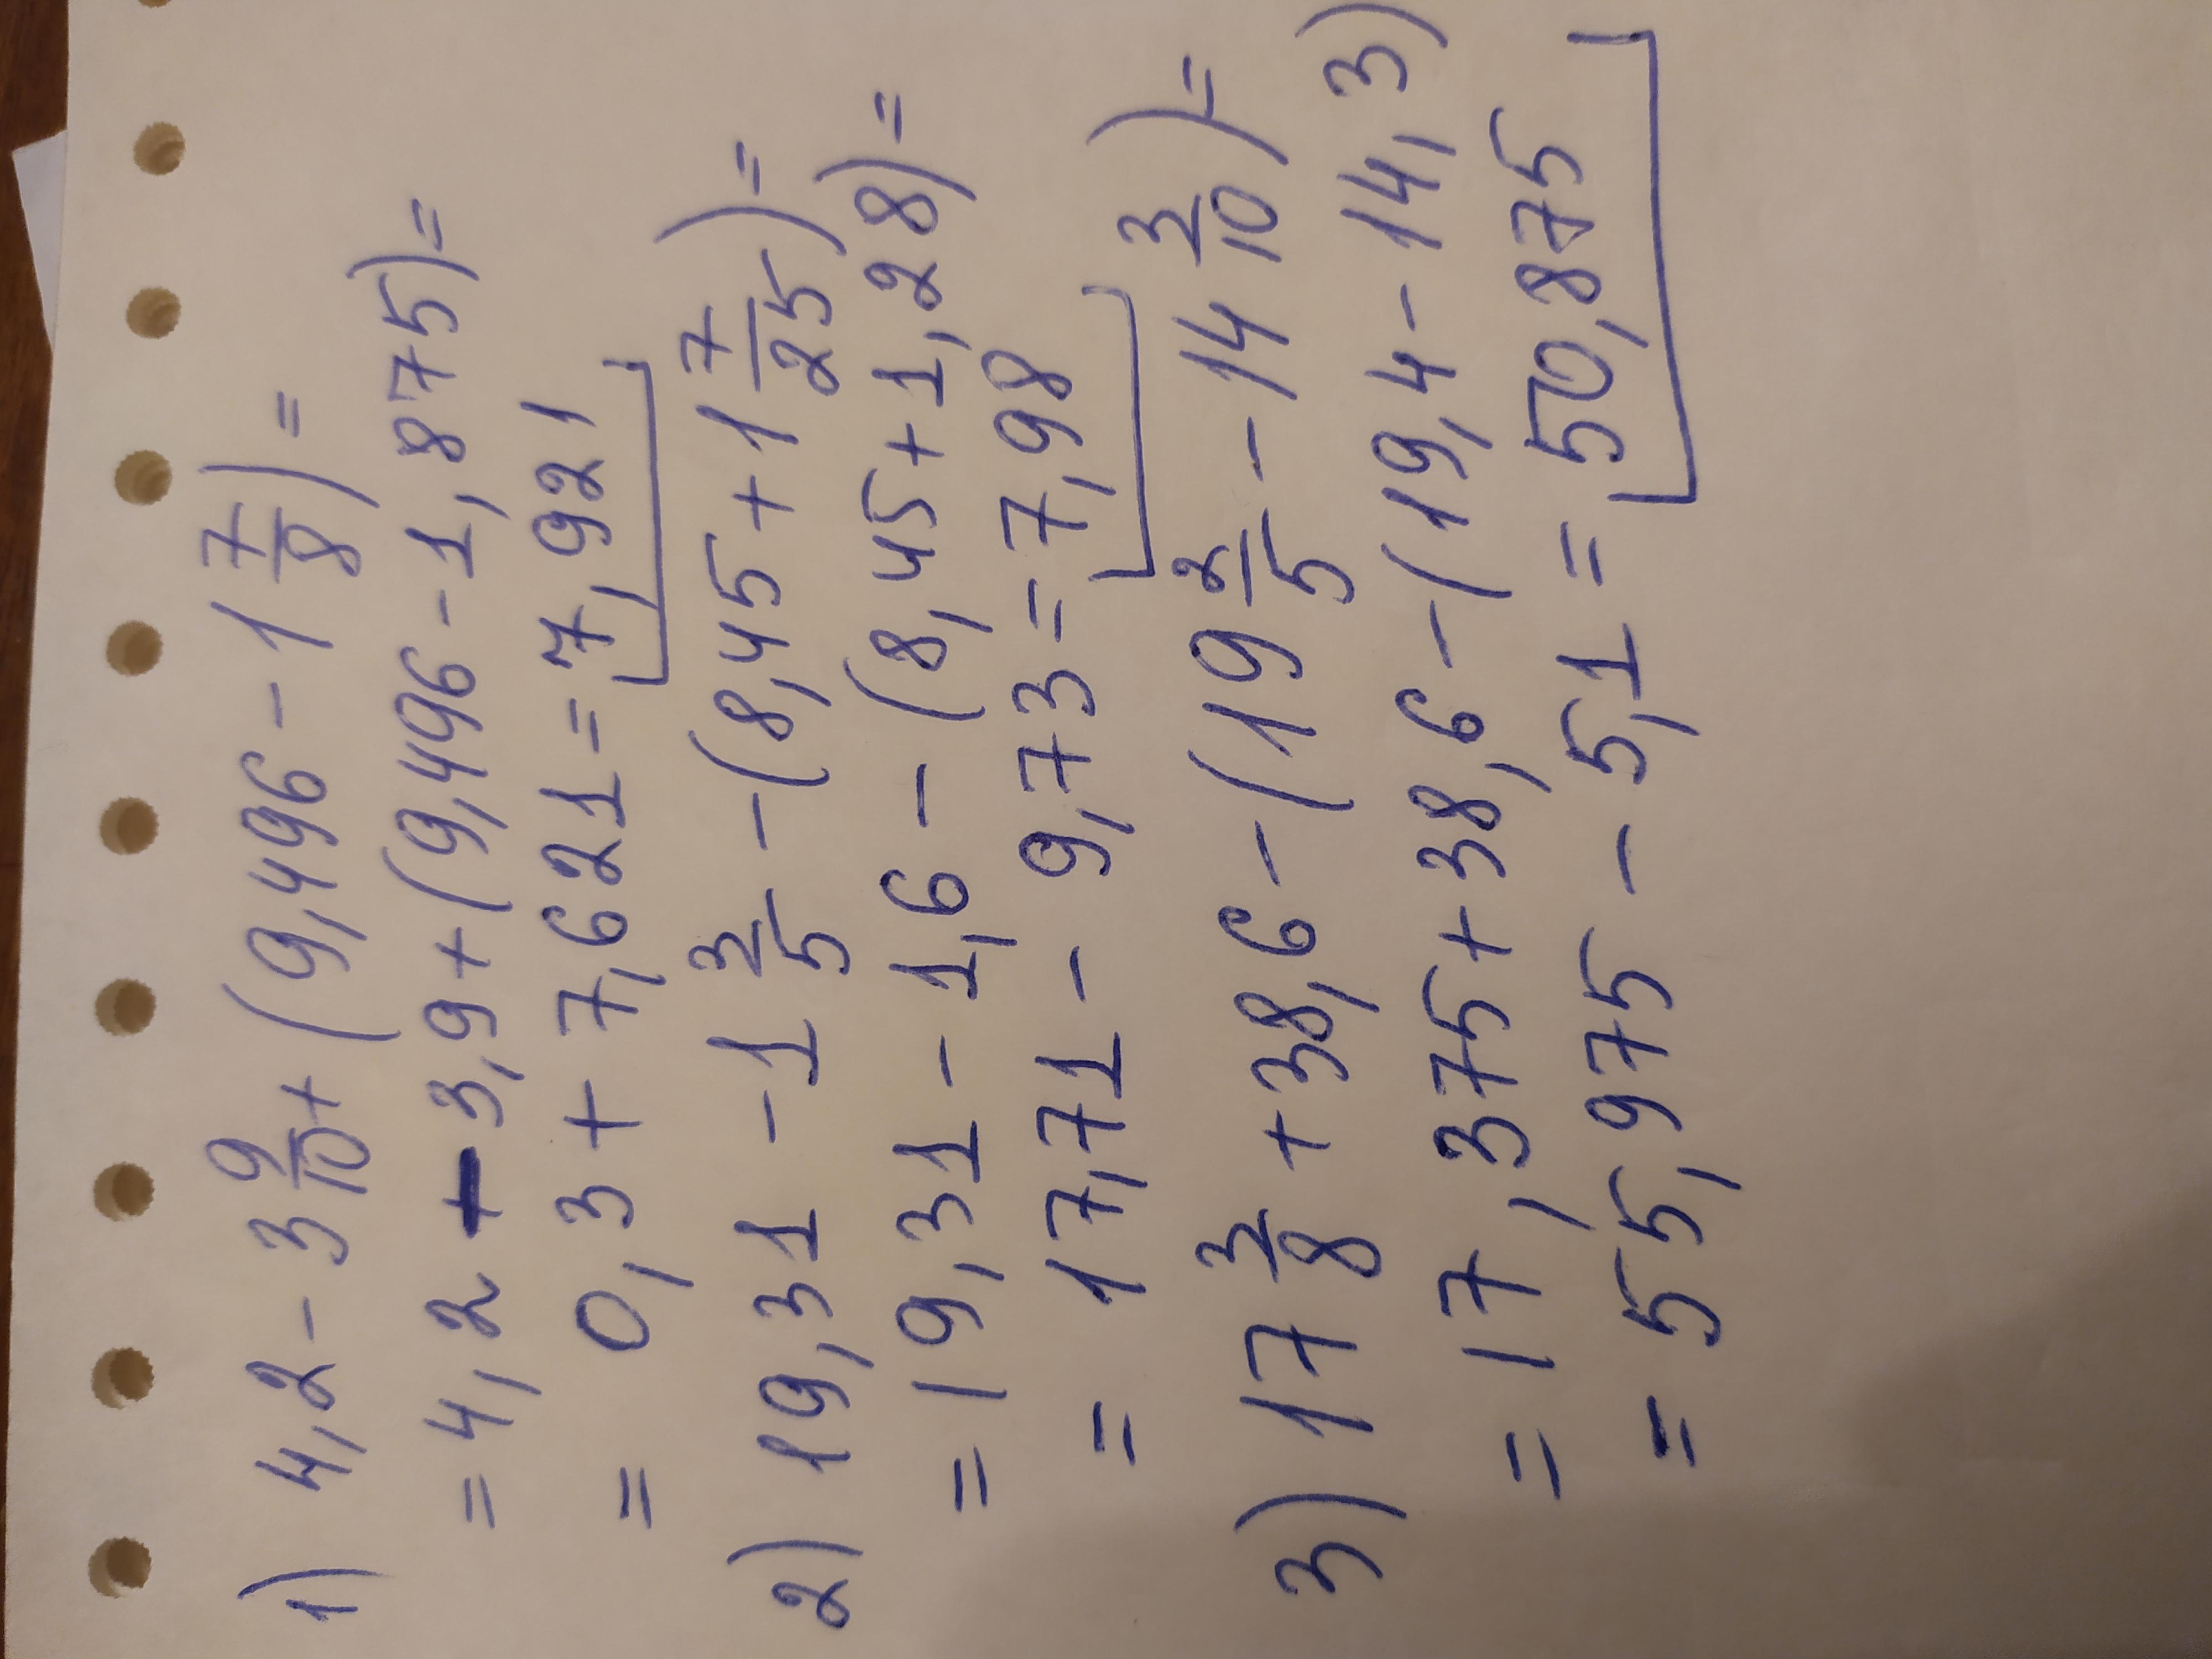 1) 4,2 - 3 9/10 + (9,496 - 1 7/8) =
= 4,2 - 3,9 + (9,496 - 1,875) =
= 0,3 + 7,621 = 7,921
2) 19,31 - 1 3/5 - (8,45 + 1 7/25) =
= 19,31 - 1,6 - (8,45 + 1,28) =
= 17,71 - 9,73 = 7,98
3) 17 3/8 + 38,6 - (19 2/5 - 14 3/10) =
= 17,375 + 38,6 - (19,4 - 14,3)
= 55,975 - 5,1 = 50,875